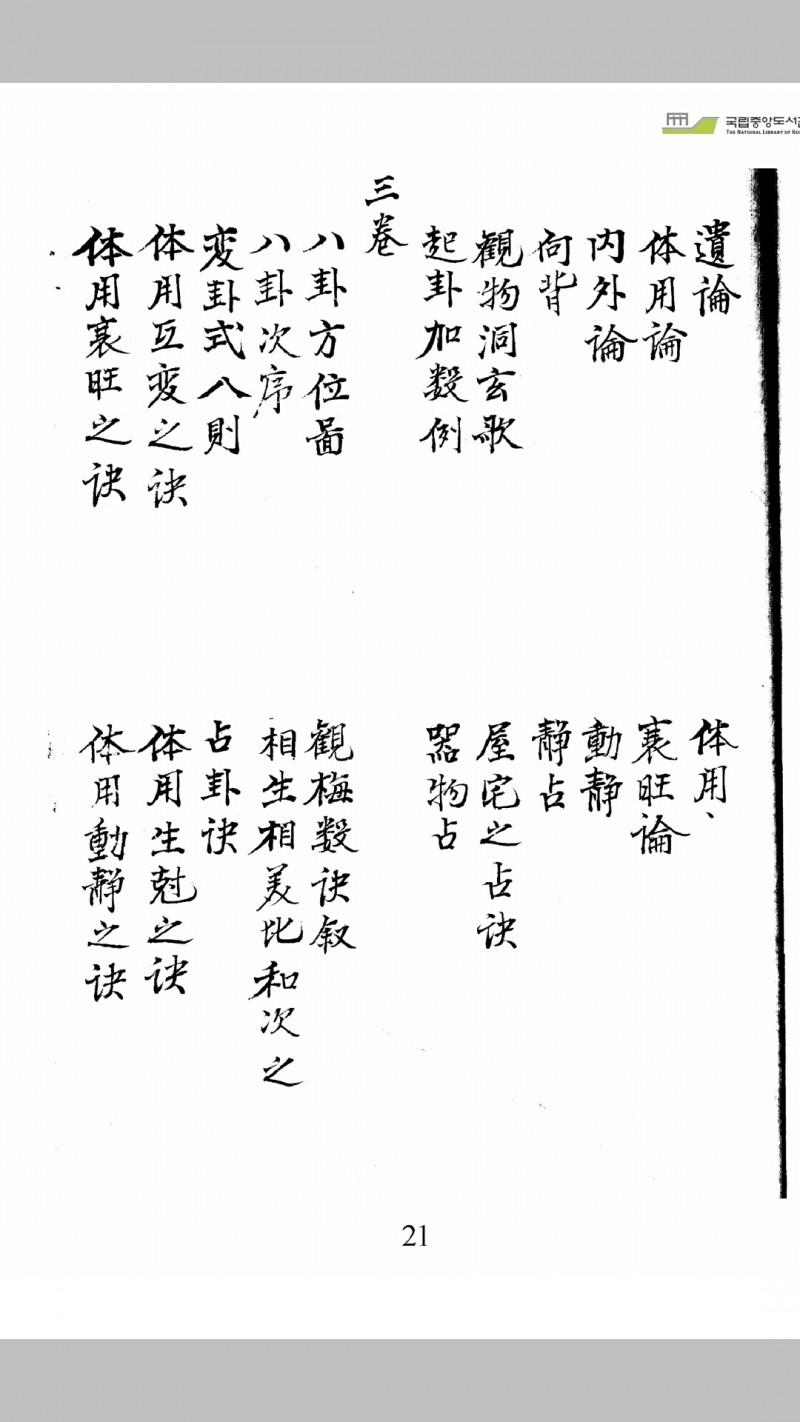 국립중앙도서관
THE NATIONAL LIBRARY OF KO
遺論
体用、
体用論
衰旺論
内外論
動静
向背
静占
観物洞玄歌
屋宅之占诀
起卦加数例
器物占
三卷
八卦方位啚
観梅数诀叙
八卦次序
相生相美比和次之
変卦式八則
占卦诀
体用互変之诀
体用生尅之诀
体用衰旺之诀
体用動静之诀
21